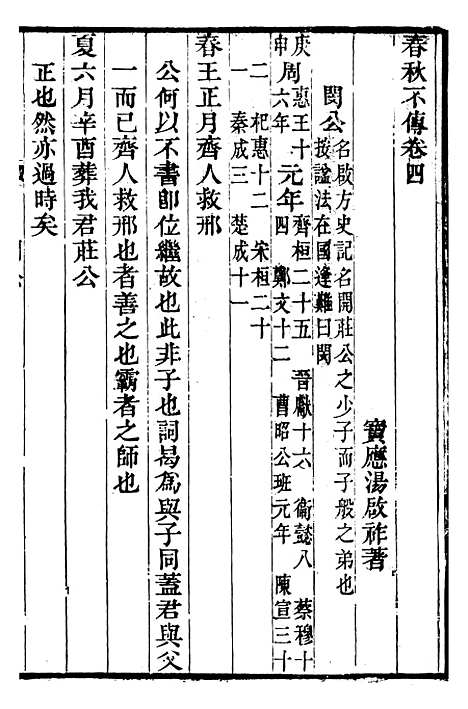 春秋不傳卷四
寶應湯啟祚著
閔公 名啟方史記名開莊公之少子而子般之弟也
按諡法在國逢難曰閔
庚申 周惠王十六年 元年 齊桓二十五 晉獻十六 衞懿八 蔡穆十
四 鄭文十二 曹昭公班元年 陳宣三十
二 杞惠十二 宋桓二十
一 秦成三 楚成十一
春王正月齊人救邢
公何以不書即位繼故也此非子也詞曷為與子同蓋君與父
一而已齊人救邢也者善之也霸者之師也
夏六月辛酉葬我君莊公
正也然亦過時矣